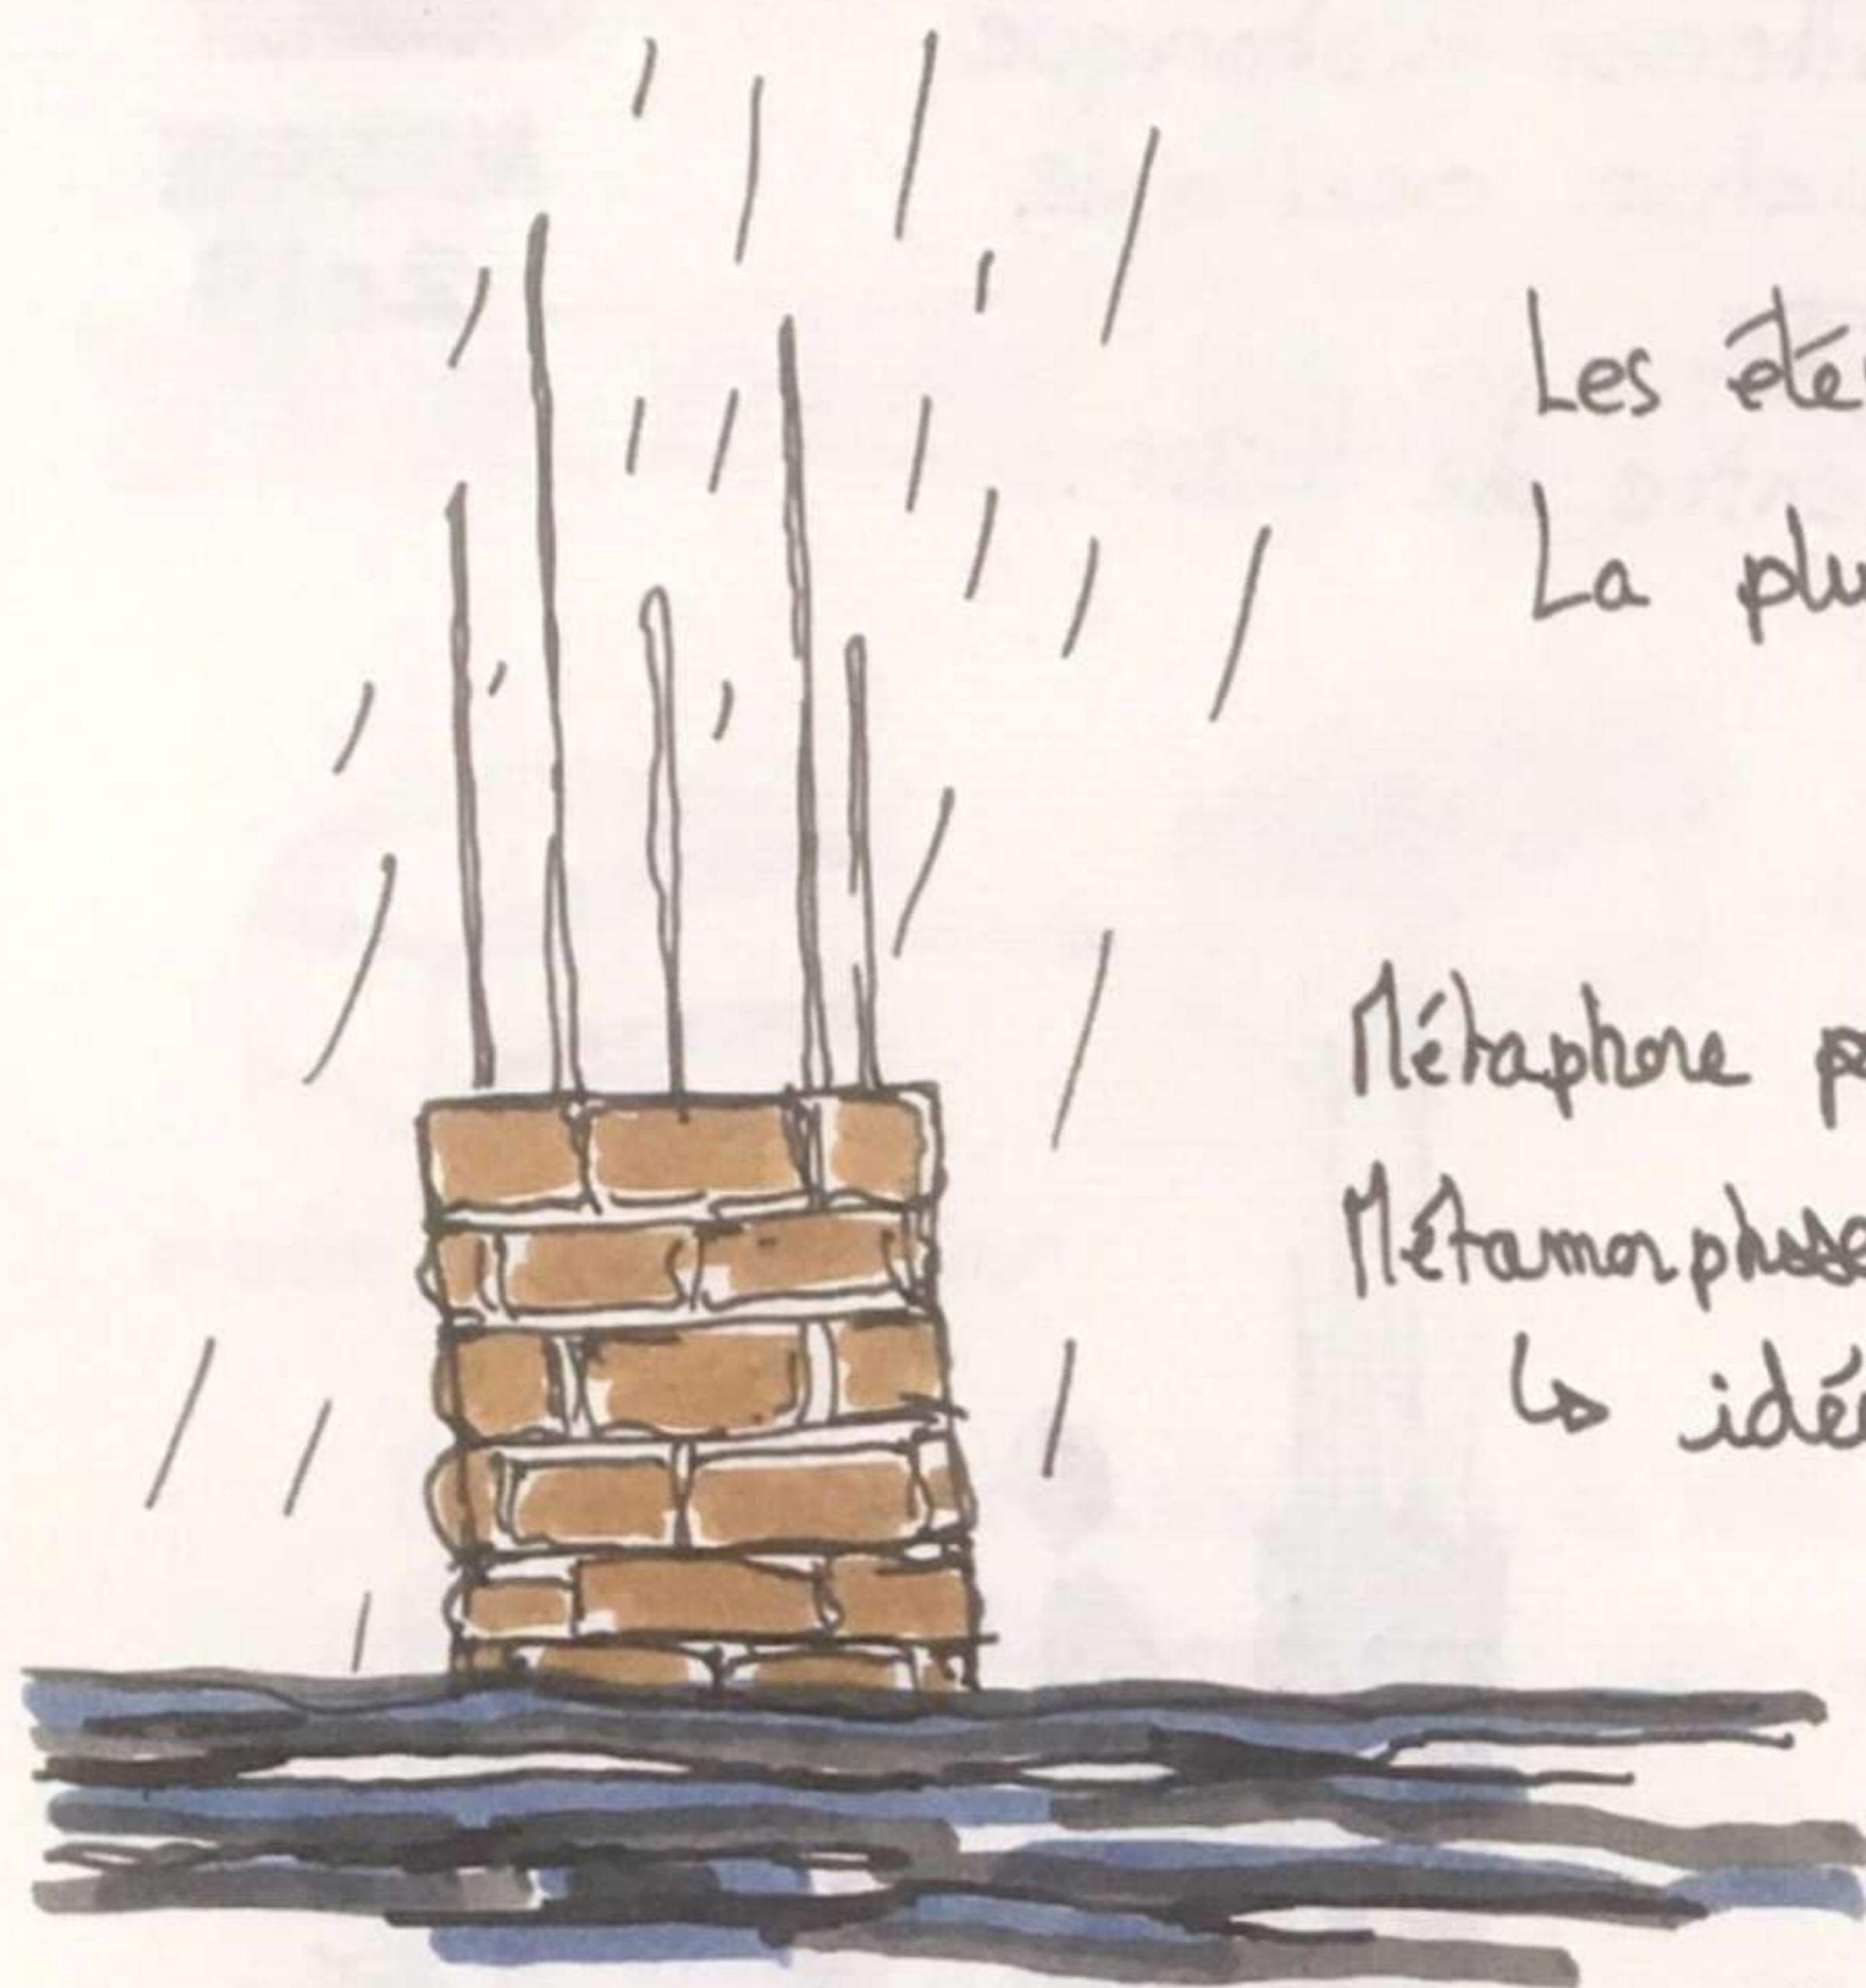 Les éte
La plu
Métaphore p
Métamorphose
↳ idé